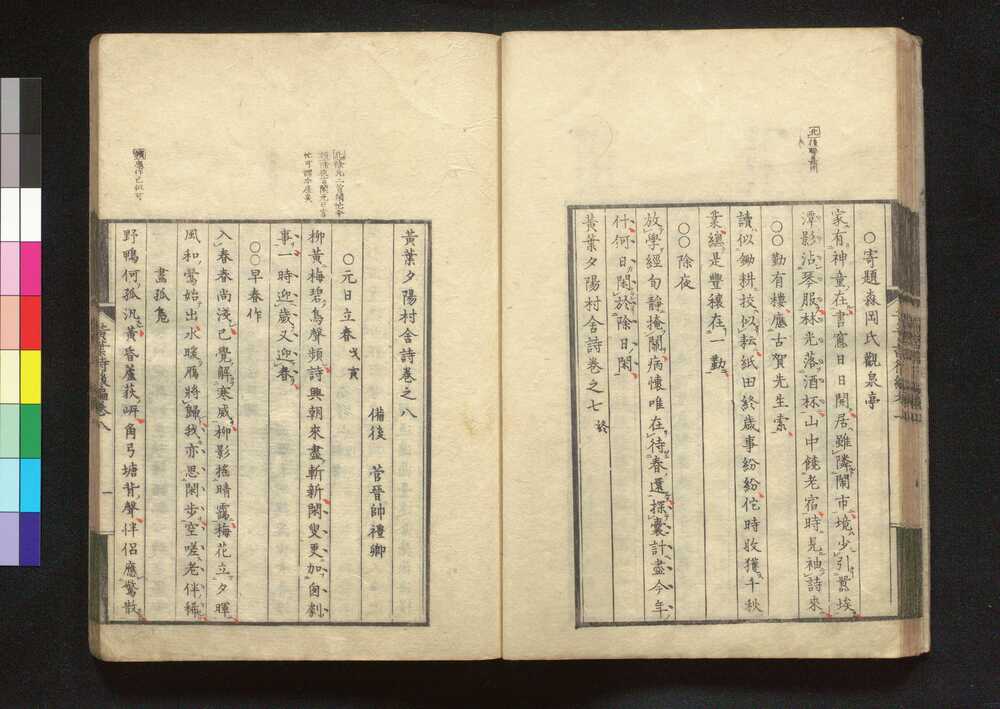 ○寄題森岡氏觀泉亭
家有神童在書窻日日開居雖隣鬧市境少引囂埃
潭影沾琴服林光落酒杯山中饒老宿時見袖詩來
○○勤有樓應古賀先生索
讀似鋤耕挍似耘紙田終歲事紛紛佗時收獲千秋
業總是豐穰在一勤
○○除夜
放學經旬靜掩關病懷唯在待春還探囊計盡今年
什何日閑於除日閑
黃葉夕陽村舍詩卷之七 終
黃葉夕陽村舍詩卷之八
備後 菅晉帥禮卿
○元日立春 戊寅
柳黃梅碧鳥聲頻詩興朝來盡斬新閑叟更加匈劇
事一時迎歲又迎春
○○早春作
入春春尚淺已覺解寒威柳影搖晴靄梅花立夕暉
風和鶯始出水暖鴈將歸我亦思閑步空嗟老伴稀
畫孤鳧
野鴨何孤汎黃昏蘆荻㟁角弓塘背聲伴侶應驚散
黃葉詩後編卷八
一